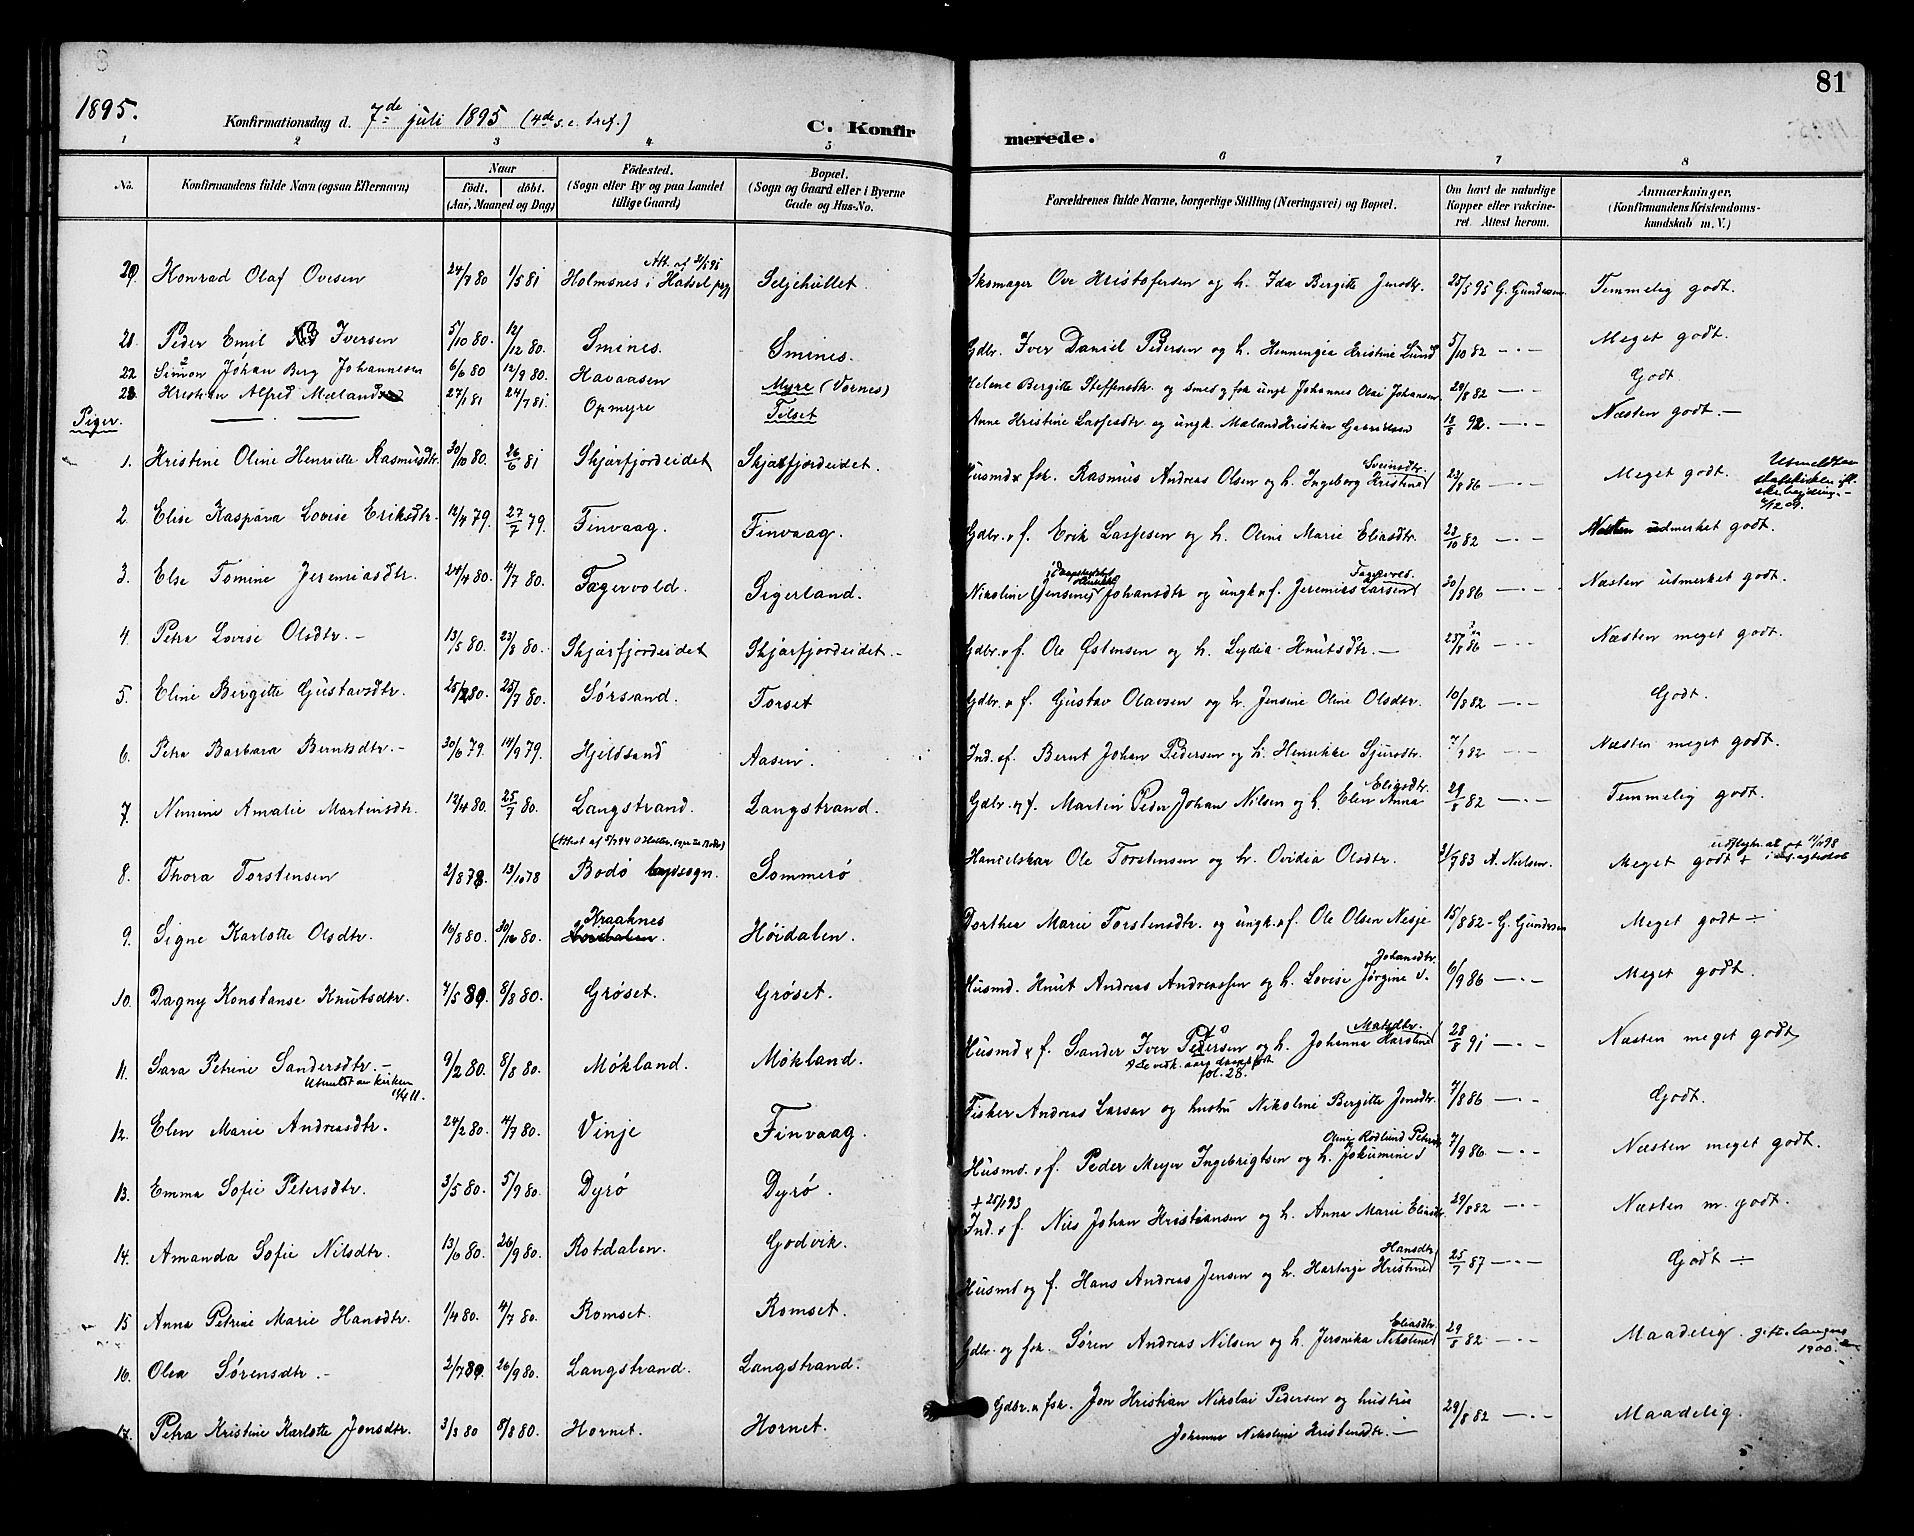 81
1895.
Konfirmationsdag d. 7de juli 1895 (4de s. e. tref.)
C. Konfirmerede.
1 2 3 4 5 6 7 8
No. Konfirmandens fulde Navn (ogsaa Efternavn) Naar födt. döbt. (Aar, Maaned og Dag) Födested. (Sogn eller By og paa Landet tillige Gaard) Bopæl. (Sogn og Gaard eller i Byerne Gade og Hus-No. Forældrenes fulde Navne, borgerlige Stilling (Næringsvei) og Bopæl. Om havt de naturlige Kopper eller vakcineret. Attest herom. Anmærkninger, (Konfirmandens Kristendomskundskab m. V.)
20. Konrad Olaf Ovesen 24/7 80 1/5 81 Holmsnes i Hadsel Seljehullet. Skomager Ove Kristofersen og h. Ida Bergitte Jensdtr. 25/5 95 G. Gundersen Temmelig godt.
21. Peder Emil Iversen 5/10 80. 12/12 80. Smines. Smines. Gdbr. Iver Daniel Pedersen og h. Henningia Kristine Lund 5/10 82 —"— Meget godt.
22 Simon Johan Berg Johannesen 6/6 80 12/9 80. Havaasen Myre (Vornes) Helene Bergitte Steffensdtr. og smed g fsk ungk Johannes Olai Johansen 29/8 82 —"— Godt
23. Kristian Alfred Mæland 27/1 81 24/7 81. Opmyre Tilset Anne Kristine Lassesdtr. og ungk. Mæland Kristian Gabrielsen 18/8 92. —"— Næsten godt. —
Piger.
1. Kristine Oline Henriette Rasmusdtr. 30/10 80. 26/6 81 Skjærfjordeidet Skjærfjordeidet. Husmd & fsk. Rasmus Andreas Olsen og h. Ingeborg Kristine Sveinsdtr. 23/8 86 —"— Meget godt.
2. Elise Kaspara Lovise Eriksdtr. 12/4 79. 27/7 79. Finvaag. Finvaag. Gdbr. & f. Erik Lassesen og h. Oline Marie Eliasdtr. 23/10 82 —"— Næsten udmerket godt.
3. Else Tomine Jeremiasdtr. 24/4 80. 4/7 80. Fagervold. Sigerland. Nikoline (Jensine) Johansdtr og ungk & f. Jeremias Larsen Fagervol. 30/8 86 —"— Næsten udmerket godt.
4. Petra Lovise Olsdtr. — 13/5 80. 23/8 80. Skjærfjordeidet Skjærfjordeidet. — Gdbr. & f. Ole Østensen og h. Lydia Knutsdtr. — 25/8 86 —"— Næsten meget godt.
5. Eline Bergitte Gustavsdtr. 25/2 80. 25/7 80. Sørsand. Torset Gdbr. & f. Gustav Olavsen og h. Jensine Oline Olsdtr. 10/8 82 —"— Godt.
6. Petra Barbara Berntsdtr. — 30/6 79. 14/9 79. Hjeldsand Aasen. Ind. & f. Bernt Johan Pedersen og h. Henrikke Sjursdtr. 7/9 82 —"— Næsten meget godt.
7. Nimine Amalie Martinsdtr. 12/4 80. 25/7 80. Langstrand. Langstrand. Gdbr. og f. Martin Peder Johan Nilsen og h. Elen Anna Eliasdtr. 29/8 82 —"— Temmelig godt.
8. Thora Torstensen 2/8 78. 13/10 78 Bodø Sommerø Handelskar Ole Torstensen og h. Ovidia Olsdtr. 21/9 83 A. Nielsen. Meget godt +
9. Signe Karlotte Olsdtr. 16/8 80. 30/10 80. Kraaknes Høidalen. Dorthea Marie Torstensdtr. og ungk. & f. Ole Olsen Nesje 15/8 82 - G. Gundersen Meget godt ÷
10. Dagny Konstanse Knutsdtr. 7/5 80. 8/8 80. Grøset. Grøset. Husmd. Knut Andreas Andreassen og h. Lovise Jørgine Johansdtr. 6/9 86 —"— Meget godt.
11. Sara Petrine Sandersdtr. — 9/2 80. 8/8 80. Møkland. Møkland. Husmd & f. Sander Iver Pedersen og h. Johanna Karoline Matsdtr. 28/8 91 —"— Næsten meget godt
Utmeldt av kirken 12/4 11. fol. 28.
12. Elen Marie Andreasdtr. 24/2 80. 4/7 80. Vinje Finvaag. Fisker Andreas Larsen og hustru Nikoline Bergitte Jonsdtr. 7/8 86 —"— Godt.
13. Emma Sofie Petersdtr. 3/5 80. 5/9 80. Dyrø Dyrø. Husmd. & f. Peder Meyer Ingebrigtsen og h. Jokumine Oline Rødlund 7/9 86 —"— Næsten meget godt.
14. Amanda Sofie Nilsdtr. 13/6 80. 26/9 80. Rotdalen. Godvik. Ind. & f. Nils Johan Kristiansen og h. Anna Marie Eliasdtr. 29/8 82 —"— Næsten m. godt.
15 Anna Petrine Marie Hansdtr. 1/4 80. 4/7 80. Romset. Romset. Husmd og f. Hans Andreas Jensen og h. Hartvige Kristine Hansdtr. 25/7 87 —"— Godt ÷
16. Olea Sørensdtr. — 2/7 80. 26/9 80. Langstrand. Langstrand. Gdbr. og fsk. Søren Andreas Nilsen og h. Jeronika Nikoline Eliasdtr. 29/8 82. —"— Maadelig. 1900.
17. Petra Kristine Karlotte Jonsdtr. 3/3 80 8/8 80. Hornet. Hornet. Gdbr. & fsk. Jon Kristian Nikolai Pedersen og hustru 29/8 82 —"— Maadelig.
Johanne Nikoline Kristensdtr. —